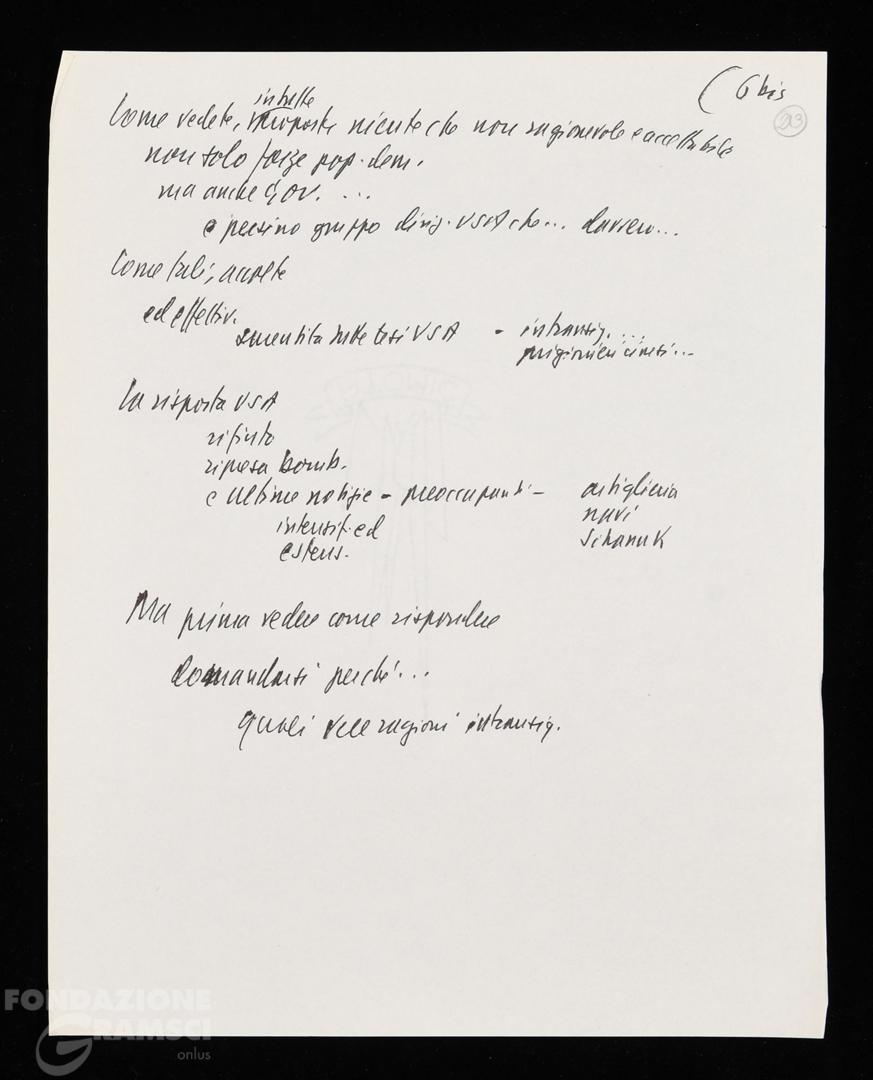 (6 bis
213
in tutte
Come vedete, proposte niente che non ragionevole e accettabile
non solo forze pop. dem.
ma anche gov. ...
e persino gruppo dirig. USA che... davvero...
Come tali, accolte
ed effettiv.
smentita sulle tesi USA - intransig. ...
prigionieri cinesi...
La risposta USA
rifiuto
ripresa bomb.
e ultime notizie - preoccupanti - artiglieria
intensif. ed navi
estens. Sihanuk
Ma prima vedere come rispondere
domandarsi perché...
quali vere ragioni intransig.
FONDAZIONE
GRAMSCI
onlus